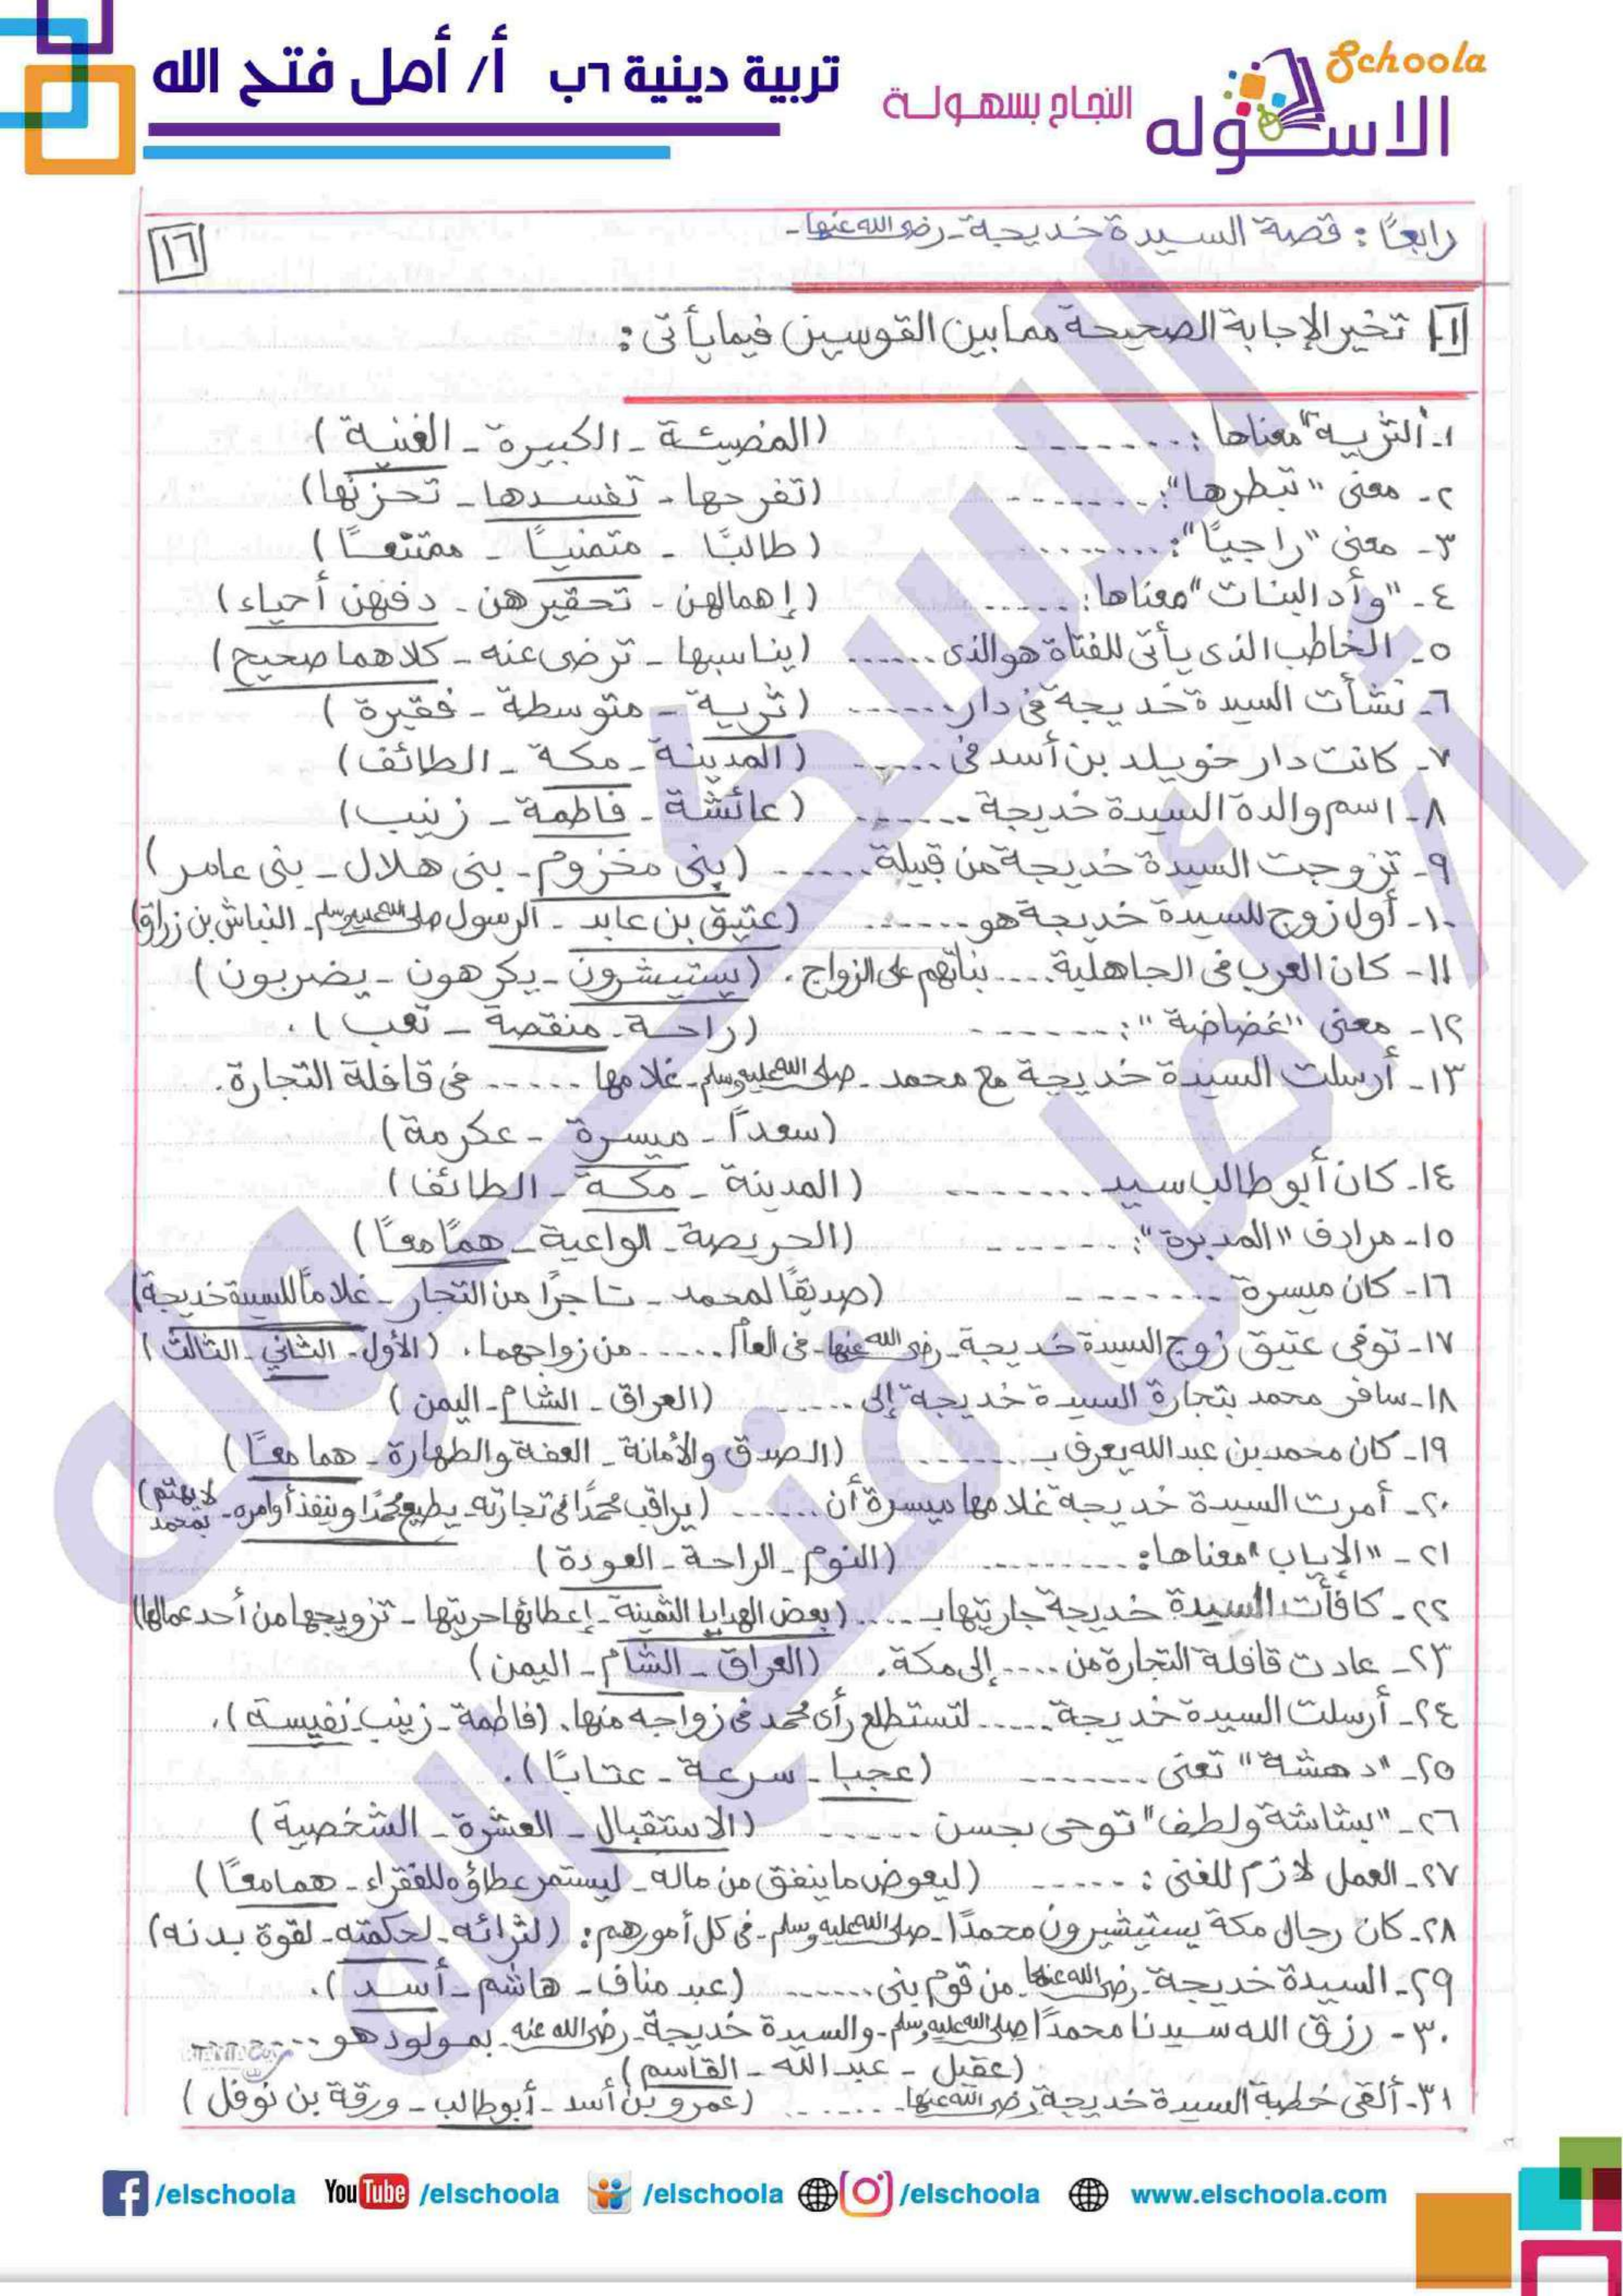 تربية دينية ٦ب أ/ أمل فتح الله
النجاح بسهولة
Schoola
الاسكوله
١٦
رابعًا: قصة السيدة خديجة - رضى الله عنها -
١- تخير الإجابة الصحيحة مما بين القوسين فيما يأتى:
١- "الثرية" معناها: ....... (المضيئة - الكبيرة - الغنية)
٢- معنى "تبطرها": ....... (تفرحها - تفسدها - تحزنها)
٣- معنى "راجيًا": ....... (طالبًا - متمنيًا - ممتنعًا)
٤- "وأد البنات" معناها: ...... (إهمالهن - تحقيرهن - دفنهن أحياء)
٥- الخاطب الذى يأتى للفتاة هو الذى ...... (يناسبها - ترضى عنه - كلاهما صحيح)
٦- نشأت السيدة خديجة فى دار ...... (ثرية - متوسطة - فقيرة)
٧- كانت دار خويلد بن أسد فى ...... (المدينة - مكة - الطائف)
٨- اسم والدة السيدة خديجة ...... (عائشة - فاطمة - زينب)
٩- تزوجت السيدة خديجة من قبيلة ...... (بنى مخزوم - بنى هلال - بنى عامر)
١٠- أول زوج للسيدة خديجة هو ...... (عتيق بن عابد - الرسول صلى الله عليه وسلم - النباش بن زراق)
١١- كان العرب فى الجاهلية .... بناتهم على الزواج. (يستيشرون - يكرهون - يضربون)
١٢- معنى "غضاضة": ...... (راحة - منقصة - تعب).
١٣- أرسلت السيدة خديجة مع محمد - صلى الله عليه وسلم - غلامها ..... فى قافلة التجارة.
(سعدًا - ميسرة - عكرمة)
١٤- كان أبو طالب سيد ....... (المدينة - مكة - الطائف)
١٥- مرادف "المدبرة": ...... (الحريصة - الواعية - همًا معًا)
١٦- كان ميسرة ....... (صديقًا لمحمد - تاجرًا من التجار - غلامًا للسيدة خديجة)
١٧- توفى عتيق زوج السيدة خديجة - رضى الله عنها - فى العام ...... من زواجهما. (الأول - الثاني - الثالث)
١٨- سافر محمد بتجارة السيدة خديجة إلى ...... (العراق - الشام - اليمن)
١٩- كان محمد بن عبد الله يعرف بـ ...... (الصدق والأمانة - العفة والطهارة - هما معًا)
٢٠- أمرت السيدة خديجة غلامها ميسرة أن ...... (يراقب محمدًا فى تجارته - يطيع محمدًا وينفذ أوامره - لا يهتم بمحمد)
٢١- "الإياب" معناها: ....... (النوم - الراحة - العودة)
٢٢- كافأت السيدة خديجة جاريتها بـ .... (بعض الهدايا الثمينة - إعطائها حريتها - تزويجها من أحد عمالها)
٢٣- عادت قافلة التجارة من .... إلى مكة. (العراق - الشام - اليمن)
٢٤- أرسلت السيدة خديجة ..... لتستطلع رأى محمد فى زواجه منها. (فاطمة - زينب - نفيسة).
٢٥- "دهشة" تعنى ....... (عجبا - سرعة - عتابًا).
٢٦- "بشاشة ولطف" توحى بحسن ..... (الاستقبال - العشرة - الشخصية)
٢٧- العمل لازم للغنى: ..... (ليعوض ما ينفق من ماله - ليستمر عطاؤه للفقراء - هما معًا)
٢٨- كان رجال مكة يستيشيرون محمدًا - صلى الله عليه وسلم - فى كل أمورهم: (لثرائه - لحكمته - لقوة بدنه)
٢٩- السيدة خديجة - رضى الله عنها - من قوم بنى ...... (عبد مناف - هاشم - أسد).
٣٠- رزق الله سيدنا محمدًا صلى الله عليه وسلم - والسيدة خديجة - رضى الله عنه - بمولود هو ....
(عقيل - عبد الله - القاسم).
٣١- ألقى خطبة السيدة خديجة رضى الله عنها - ...... (عمرو بن أسد - أبو طالب - ورقة بن نوفل)
الاسكوله
أ/ أمل فتح الله
/elschoola YouTube /elschoola /elschoola /elschoola www.elschoola.com